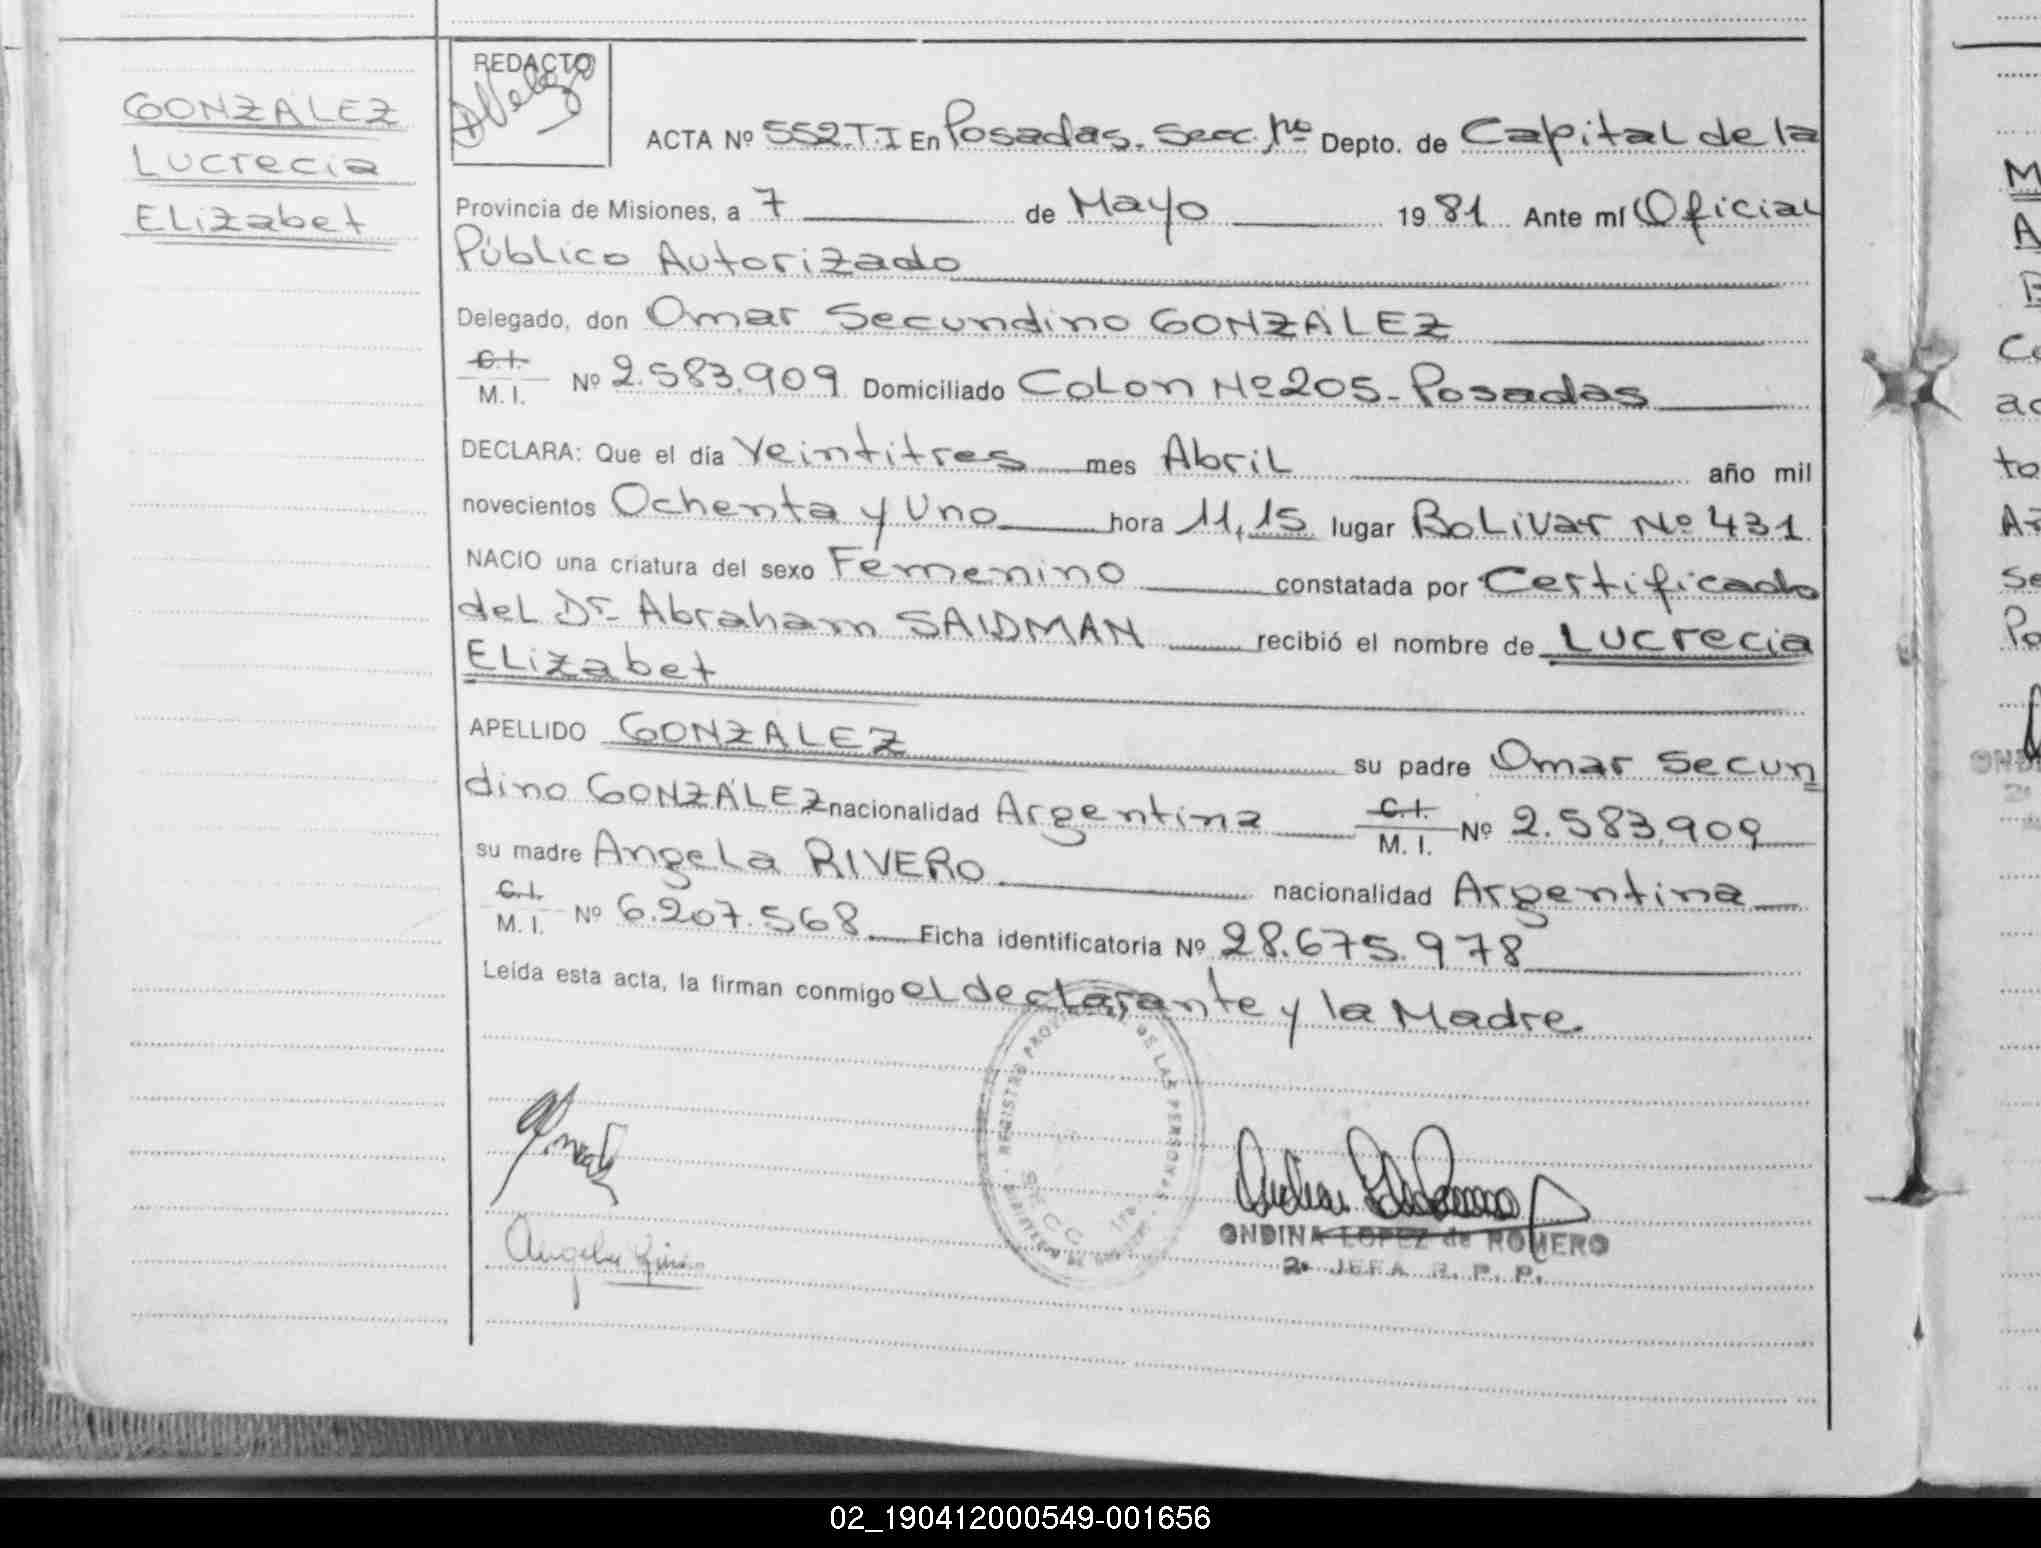 GONZÁLEZ
Lucrecia
Elizabet
REDACTO
ACTA Nº 552.T.I En Posadas. Secc. 1ra Depto. de Capital de la
Provincia de Misiones, a 7 de Mayo 1981 Ante mí Oficial
Público Autorizado
Delegado, don Omar Secundino GONZÁLEZ
C.I.
M. I. Nº 2.583.909 Domiciliado Colon Nº 205- Posadas
DECLARA: Que el día Veintitres mes Abril año mil
novecientos Ochenta y Uno hora 11,15 lugar Bolivar Nº 431
NACIO una criatura del sexo Femenino constatada por Certificado
del Dr. Abraham SAIDMAN recibió el nombre de Lucrecia
Elizabet
APELLIDO GONZALEZ su padre Omar Secun
dino GONZÁLEZ nacionalidad Argentina C.I.
M. I. Nº 2.583.909
su madre Angela RIVERO nacionalidad Argentina
C.I.
M. I. Nº 6.207.568 Ficha identificatoria Nº 28.675.978
Leída esta acta, la firman conmigo el declarante y la Madre.
REGISTRO PROVINCIAL DE LAS PERSONAS
SECC. 1ra
Angela Rivero
ONDINA LOPEZ de ROMERO
2ª JEFA R. P. P.
M
A
E
Co
ac
to
A
Se
Po
OND
2ª
02_190412000549-001656